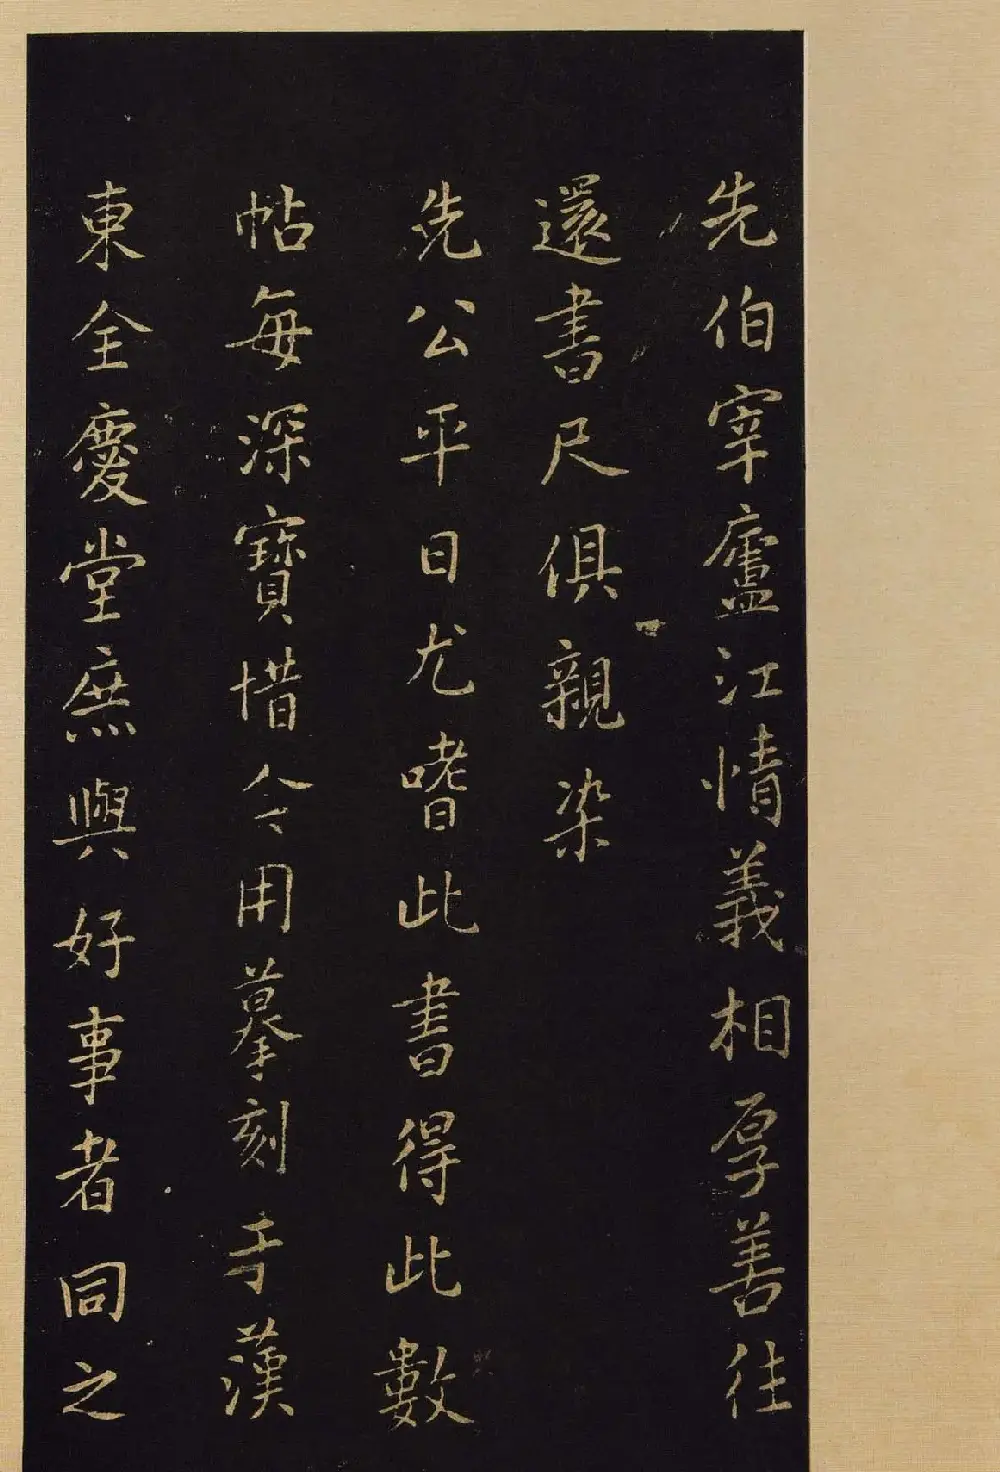 先伯宰廬江情義相厚善往
還書尺俱親染
先公平日尤嗜此書得此數
帖每深寶惜今用摹刻于漢
東全慶堂庶與好事者同之